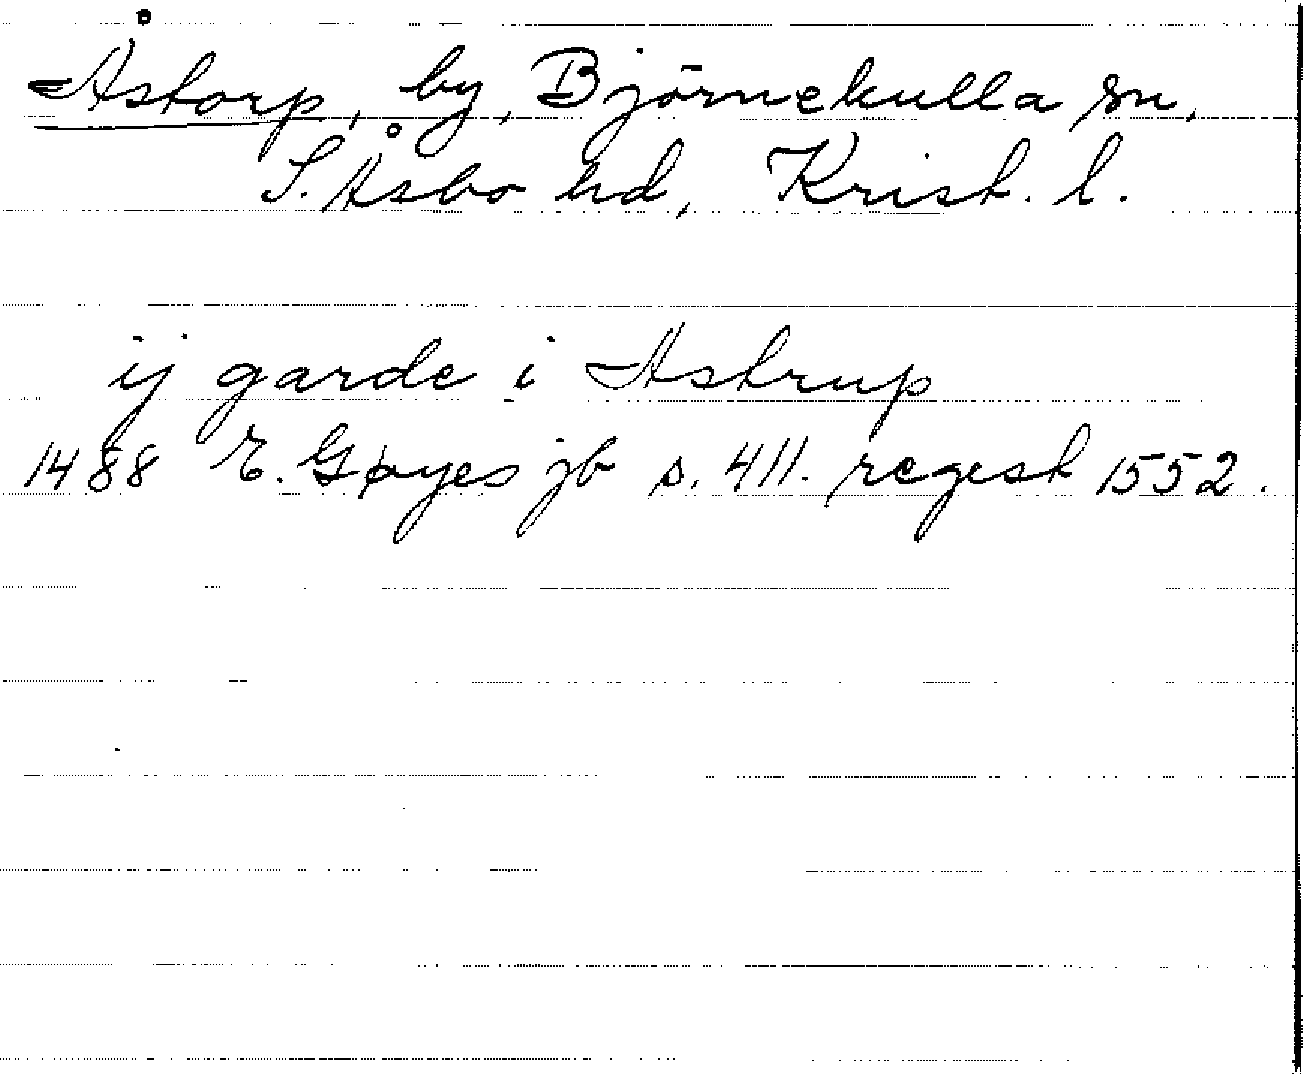 Åstorp, by, Björnekulla sn,
S. Åsbo hd, Krist. l.
ij garde i Astrup
1488 E. Gøyes jb s. 411. regest 1552.